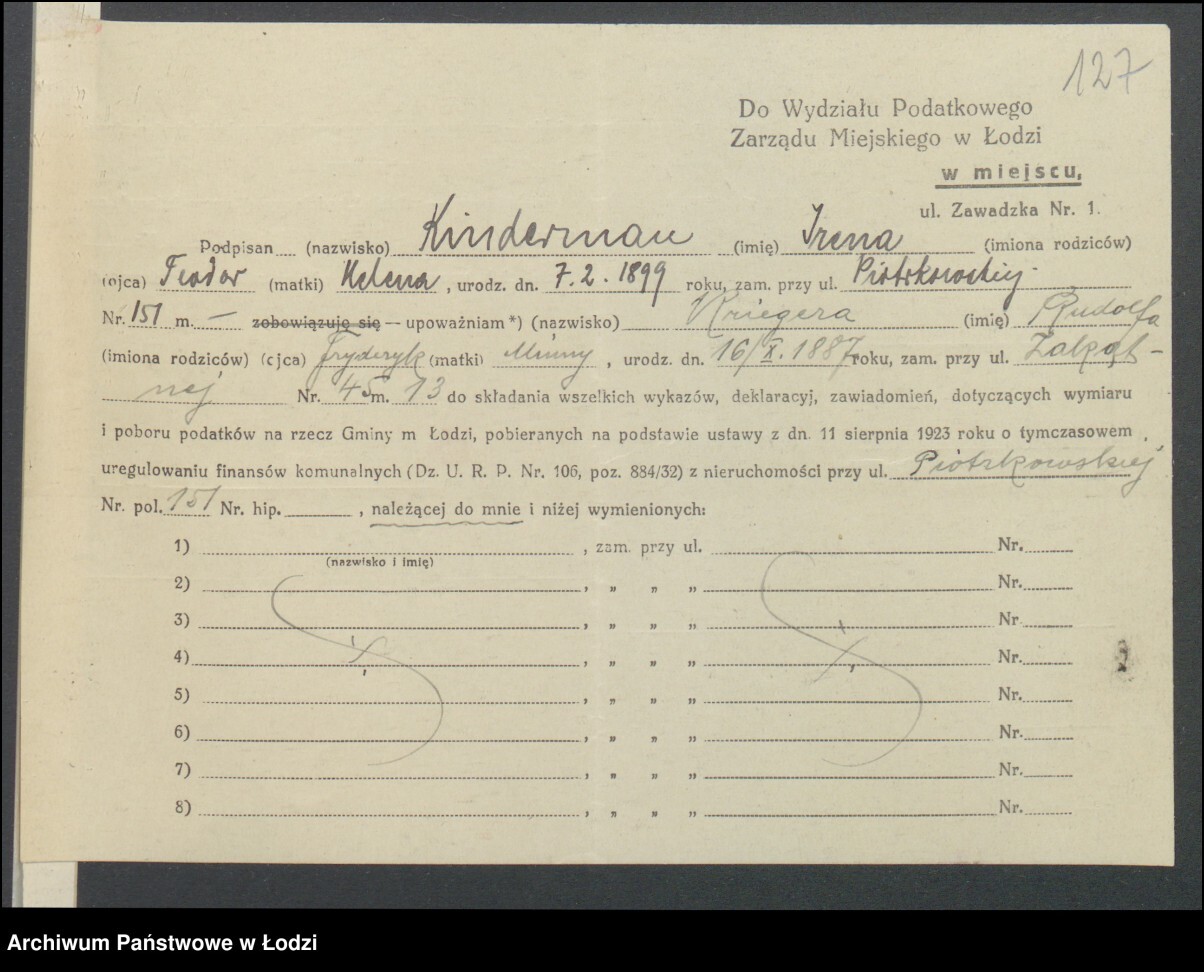 127
Do Wydziału Podatkowego
Zarządu Miejskiego w Łodzi
w miejscu,
ul. Zawadzka Nr. 1.
Podpisan (nazwisko) Kinderman (imię) Irena (imiona rodziców)
(ojca) Teodor (matki) Helena, urodz. dn. 7.2.1899 roku, zam. przy ul. Piotrkowskiej
Nr. 151 m. — zobowiązuję się — upoważniam*) (nazwisko) Kriegera (imię) Rudolfa
(imiona rodziców) (ojca) Fryderyk (matki) Minny, urodz. dn. 16/X.1887 roku, zam. przy ul. Zakąt-
nej Nr. 45 m. 13 do składania wszelkich wykazów, deklaracyj, zawiadomień, dotyczących wymiaru
i poboru podatków na rzecz Gminy m Łodzi, pobieranych na podstawie ustawy z dn. 11 sierpnia 1923 roku o tymczasowem
uregulowaniu finansów komunalnych (Dz. U. R. P. Nr. 106, poz. 884/32) z nieruchomości przy ul. Piotrkowskiej
Nr. pol. 151 Nr. hip. , należącej do mnie i niżej wymienionych:
1) , zam. przy ul. Nr.
(nazwisko i imię)
2) , „ „ „ Nr.
3) , „ „ „ Nr.
4) , „ „ „ Nr.
5) , „ „ „ Nr.
6) , „ „ „ Nr.
7) , „ „ „ Nr.
8) , „ „ „ Nr.
Archiwum Państwowe w Łodzi